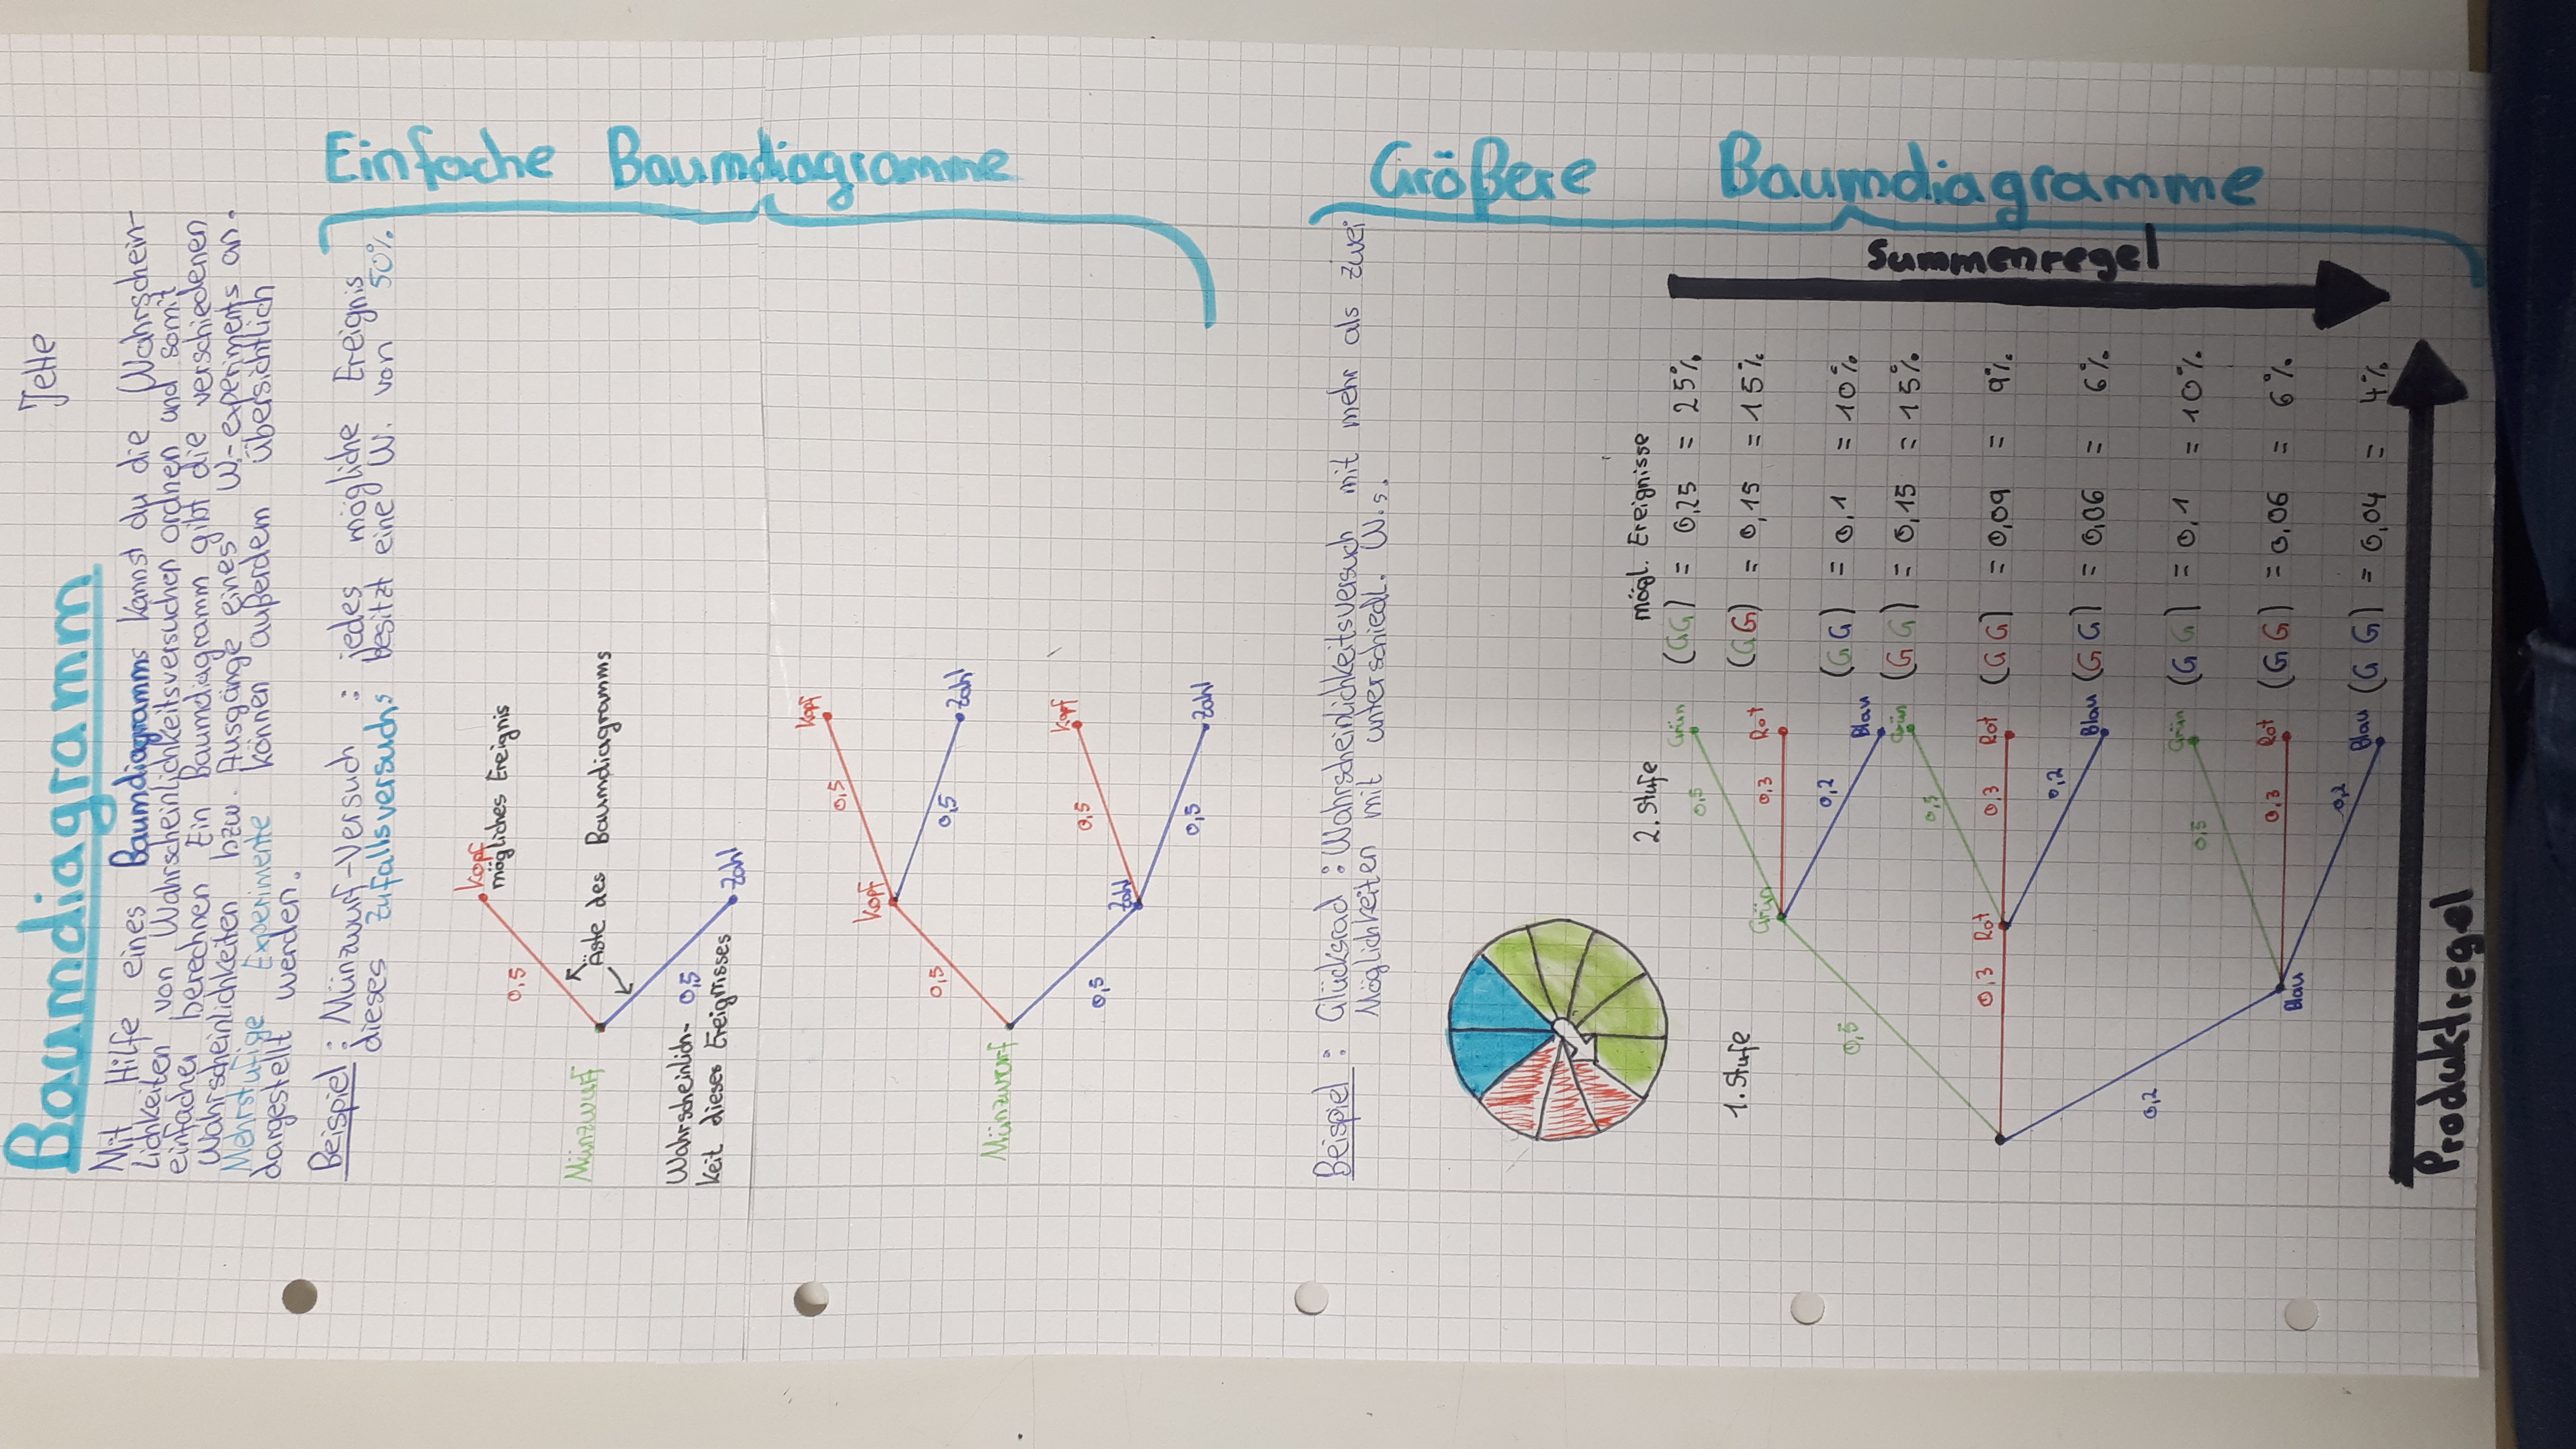 Jette
Baumdiagramm
Mit Hilfe eines Baumdiagramms kannst du die Wahrschein-
lichkeiten von Wahrscheinlichkeitsversuchen ordnen und somit
einfacher berechnen. Ein Baumdiagramm gibt die verschiedenen
Wahrscheinlichkeiten bzw. Ausgänge eines W.-experiments an.
Mehrstufige Experimente können außerdem übersichtlich
dargestellt werden.
Einfache Baumdiagramme
Beispiel: Münzwurf-Versuch : jedes mögliche Ereignis
dieses Zufallsversuchs besitzt eine W. von 50%.
Kopf
mögliches Ereignis
0,5
Münzwurf
Äste des Baumdiagramms
0,5
Zahl
Wahrscheinlich-
keit dieses Ereignisses
Kopf
0,5
Kopf
0,5
0,5
Zahl
Münzwurf
Kopf
0,5
0,5
Zahl
0,5
Zahl
Größere Baumdiagramme
Beispiel: Glücksrad : Wahrscheinlichkeitsversuch mit mehr als zwei
Möglichkeiten mit unterschiedl. W.s.
1. Stufe
2. Stufe
mögl. Ereignisse
0,5 Grün
0,5 Grün (GG) = 0,25 = 25%
0,3 Rot (GG) = 0,15 = 15%
0,2 Blau (GG) = 0,1 = 10%
0,3 Rot
0,5 Grün (GG) = 0,15 = 15%
0,3 Rot (GG) = 0,09 = 9%
0,2 Blau (GG) = 0,06 = 6%
0,2 Blau
0,5 Grün (GG) = 0,1 = 10%
0,3 Rot (GG) = 0,06 = 6%
0,2 Blau (GG) = 0,04 = 4%
Summenregel
Produktregel